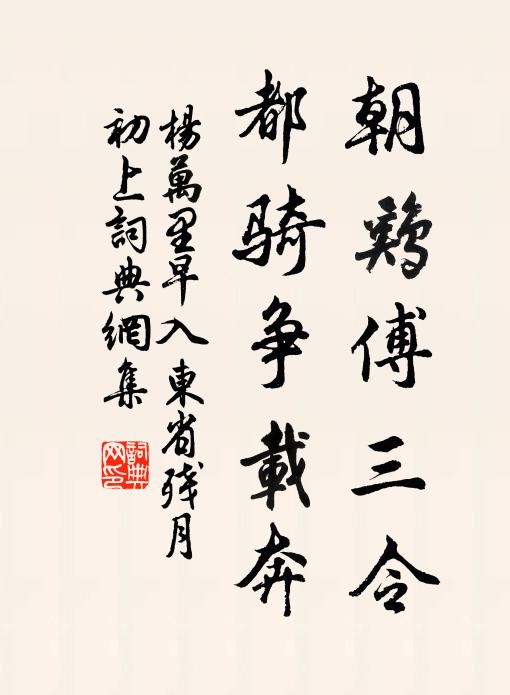 朝鷄傅三令
都騎争載奔
楊萬里早入東省殘月
初上詞典網集
詞典網印